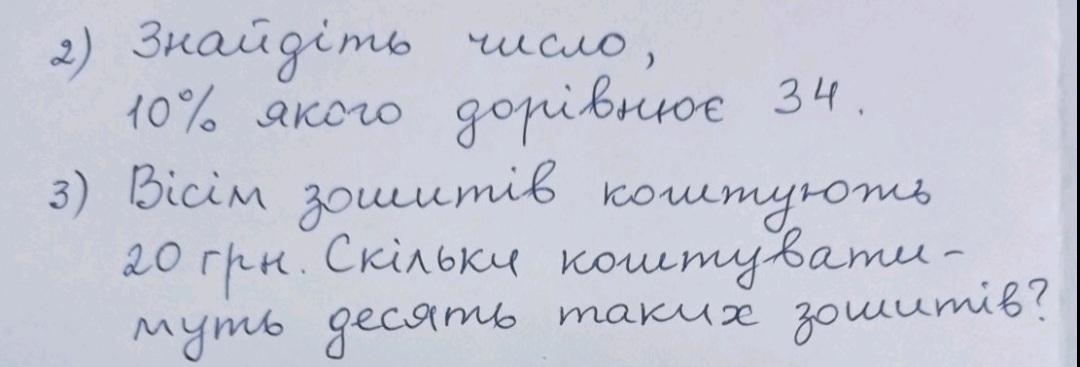 2) Знайдіть число,
10% якого дорівнює 34.
3) Вісім зошитів коштують
20 грн. Скільки коштувати-
муть десять таких зошитів?